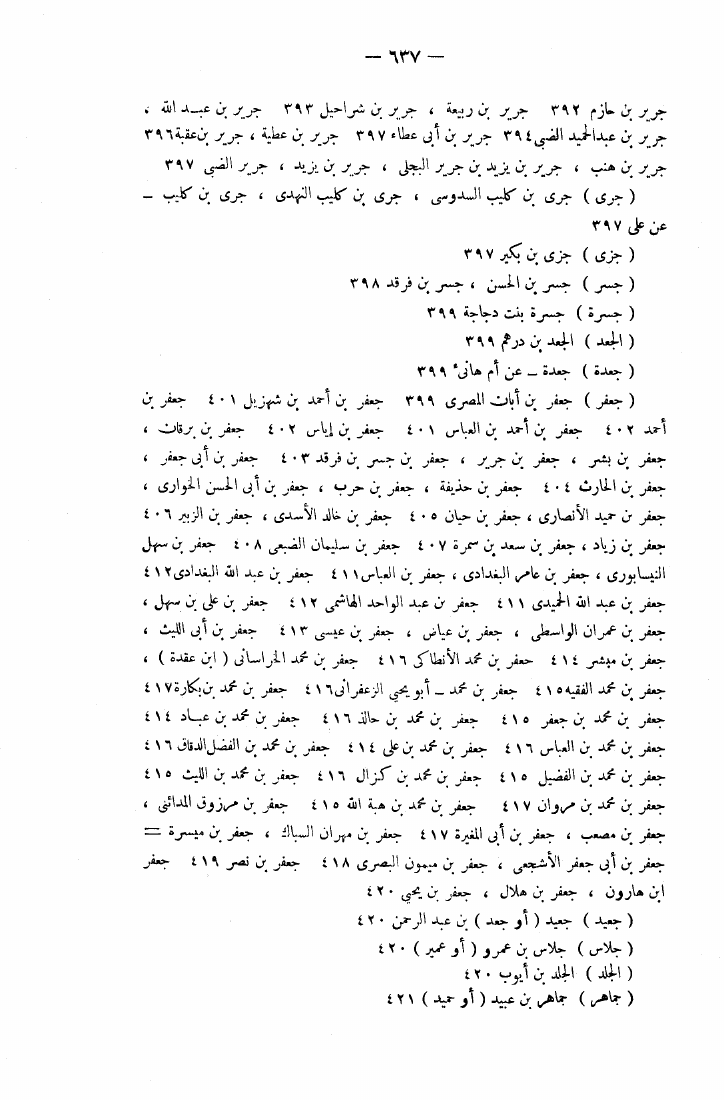 — ٦٣٧ —
جرير بن حازم ٣٩٢ جرير بن ربيعة ، جرير بن شراحيل ٣٩٣ جرير بن عبد الله ،
جرير بن عبدالحميد الضبى٣٩٤ جرير بن أبى عطاء ٣٩٧ جرير بن عطية ، جرير بن عقبة٣٩٦
جرير بن هنب ، جرير بن يزيد بن جرير البجلى ، جرير بن يزيد ، جرير الضبى ٣٩٧
( جرى ) جرى بن كليب السدوسى ، جرى بن كليب النهدى ، جرى بن كليب –
عن على ٣٩٧
( جزى ) جزى بن بكير ٣٩٧
( جسر ) جسر بن الحسن ، جسر بن فرقد ٣٩٨
( جسرة ) جسرة بنت دجاجة ٣٩٩
( الجعد ) الجعد بن درهم ٣٩٩
( جعدة ) جعدة – عن أم هانئ ٣٩٩
( جعفر ) جعفر بن أبان المصرى ٣٩٩ جعفر بن أحمد بن شهزيل ٤٠١ جعفر بن
أحمد ٤٠٢ جعفر بن أحمد بن العباس ٤٠١ جعفر بن إياس ٤٠٢ جعفر بن برقان ،
جعفر بن بشر ، جعفر بن جرير ، جعفر بن جسر بن فرقد ٤٠٣ جعفر بن أبى جعفر ،
جعفر بن الحارث ٤٠٤ جعفر بن حذيفة ، جعفر بن حرب ، جعفر بن أبى الحسن الخوارى ،
جعفر بن حميد الأنصارى ، جعفر بن حيان ٤٠٥ جعفر بن خالد الأسدى ، جعفر بن الزبير ٤٠٦
جعفر بن زياد ، جعفر بن سعد بن سمرة ٤٠٧ جعفر بن سليمان الضبعى ٤٠٨ جعفر بن سهل
النيسابورى ، جعفر بن عامر البغدادى ، جعفر بن العباس٤١١ جعفر بن عبد الله البغدادى٤١٢
جعفر بن عبد الله الحميدى ٤١١ جعفر بن عبد الواحد الهاشمى ٤١٢ جعفر بن على بن سهل ،
جعفر بن عمران الواسطى ، جعفر بن عياض ، جعفر بن عيسى ٤١٣ جعفر بن أبى الليث ،
جعفر بن مبشر ٤١٤ جعفر بن محمد الأنطاكى ٤١٦ جعفر بن محمد الخراسانى ( ابن عقدة ) ،
جعفر بن محمد الفقيه٤١٥ جعفر بن محمد – أبو يحيى الزعفرانى٤١٦ جعفر بن محمد بن بكارة٤١٧
جعفر بن محمد بن جعفر ٤١٥ جعفر بن محمد بن خالد ٤١٦ جعفر بن محمد بن عباد ٤١٤
جعفر بن محمد بن العباس ٤١٦ جعفر بن محمد بن على ٤١٤ جعفر بن محمد بن الفضل الدقاق ٤١٦
جعفر بن محمد بن الفضيل ٤١٥ جعفر بن محمد بن كزال ٤١٦ جعفر بن محمد بن الليث ٤١٥
جعفر بن محمد بن مروان ٤١٧ جعفر بن محمد بن هبة الله ٤١٥ جعفر بن مرزوق المدائنى ،
جعفر بن مصعب ، جعفر بن أبى المغيرة ٤١٧ جعفر بن مهران السباك ، جعفر بن ميسرة =
جعفر بن أبى جعفر الأشجعى ، جعفر بن ميمون البصرى ٤١٨ جعفر بن نصر ٤١٩ جعفر
ابن هارون ، جعفر بن هلال ، جعفر بن يحيى ٤٢٠
( جعيد ) جعيد ( أو جعد ) بن عبد الرحمن ٤٢٠
( جلاس ) جلاس بن عمرو ( أو عمير ) ٤٢٠
( الجلد ) الجلد بن أيوب ٤٢٠
( جماهر ) جماهر بن عبيد ( أو حميد ) ٤٢١